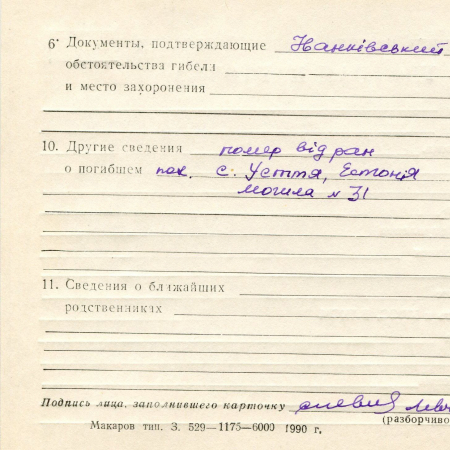 6. Документы, подтверждающие Нанківський
обстоятельства гибели
и место захоронения
10. Другие сведения помер від ран
о погибшем пох. с. Устя, Естонія
могила № 31
11. Сведения о ближайших
родственниках
Подпись лица, заполнившего карточку
(разборчиво
Макаров тип. З. 529—1175—6000 1990 г.